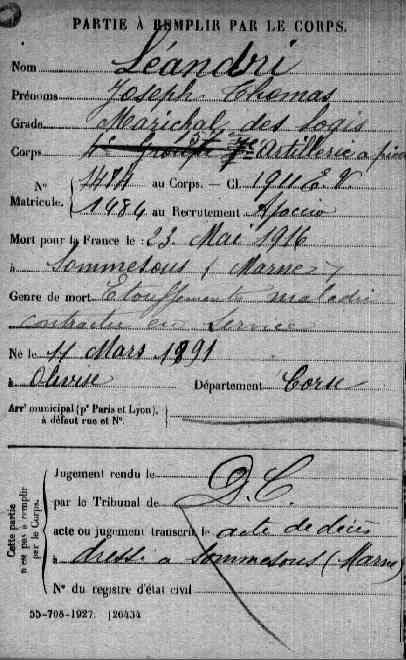 PARTIE À REMPLIR PAR LE CORPS.
Nom Léandri
Prénoms Joseph Thomas
Grade Maréchal des logis
Corps 4e Groupe Artillerie à pied
N° Matricule. 1474 au Corps. — Cl. 1911 E.V.
1484 au Recrutement Ajaccio
Mort pour la France le : 23 Mai 1916
à Sommesous (Marne)
Genre de mort Etouffements maladie
contractée en service
Né le 11 Mars 1891
à Olmise Département Corse
Arrt municipal (pr Paris et Lyon),
à défaut rue et N°.
Cette partie n'est pas à remplir par le Corps.
Jugement rendu le
par le Tribunal de D.C.
acte ou jugement transcrit le acte de décès
à dressé à Sommesous (Marne)
N° du registre d'état civil
55-708-1927. [26434